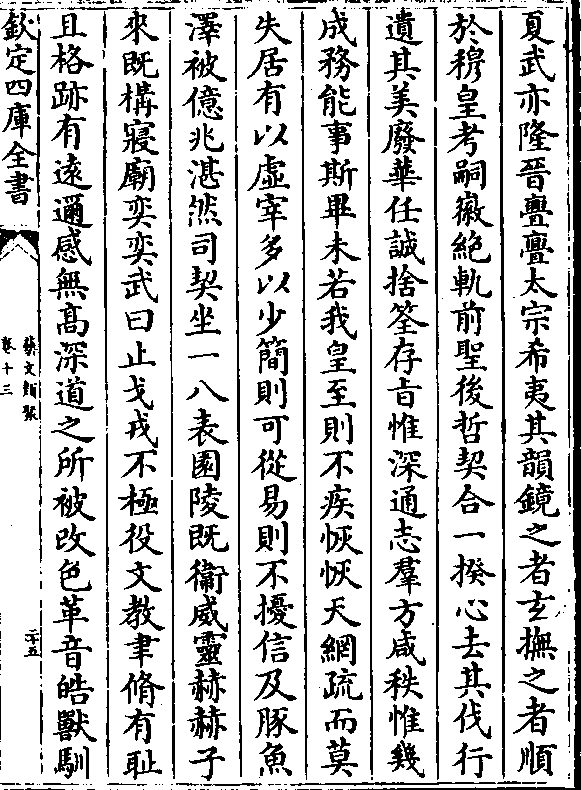 夏武亦隆晉亹亹太宗希夷其韻鏡之者玄撫之者順
於穆皇考嗣徽絶軌前聖後哲契合一揆心去其伐行
遺其美廢華任誠捨筌存㫖惟深通志羣方咸秩惟幾
成務能事斯畢未若我皇至則不疾恢恢天網疏而莫
失居有以虛宰多以少簡則可從易則不擾信及豚魚
澤被億兆湛然司契坐一八表園陵既衞威靈赫赫子
來既構寢廟奕奕武曰止戈戎不極役文教聿脩有耻
且格跡有遠邇感無髙深道之所被改色革音皓獸馴
欽定四庫全書
藝文類聚
卷十三
二十五